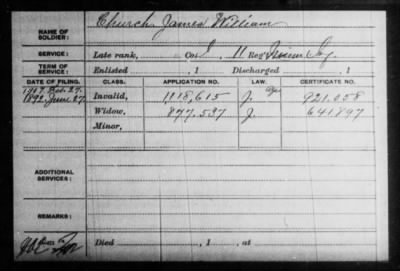 NAME OF SOLDIER: Church, James William
SERVICE: Late rank, Co. I, 11 Reg't
TERM OF SERVICE: Enlisted , 1 Discharged , 1
DATE OF FILING. CLASS. APPLICATION NO. LAW. CERTIFICATE NO.
Age
Invalid, J. 921.058
1892. June 27. Widow, 877.537 J. 641897
Minor,
ADDITIONAL SERVICES:
REMARKS:
Died , 1 , at